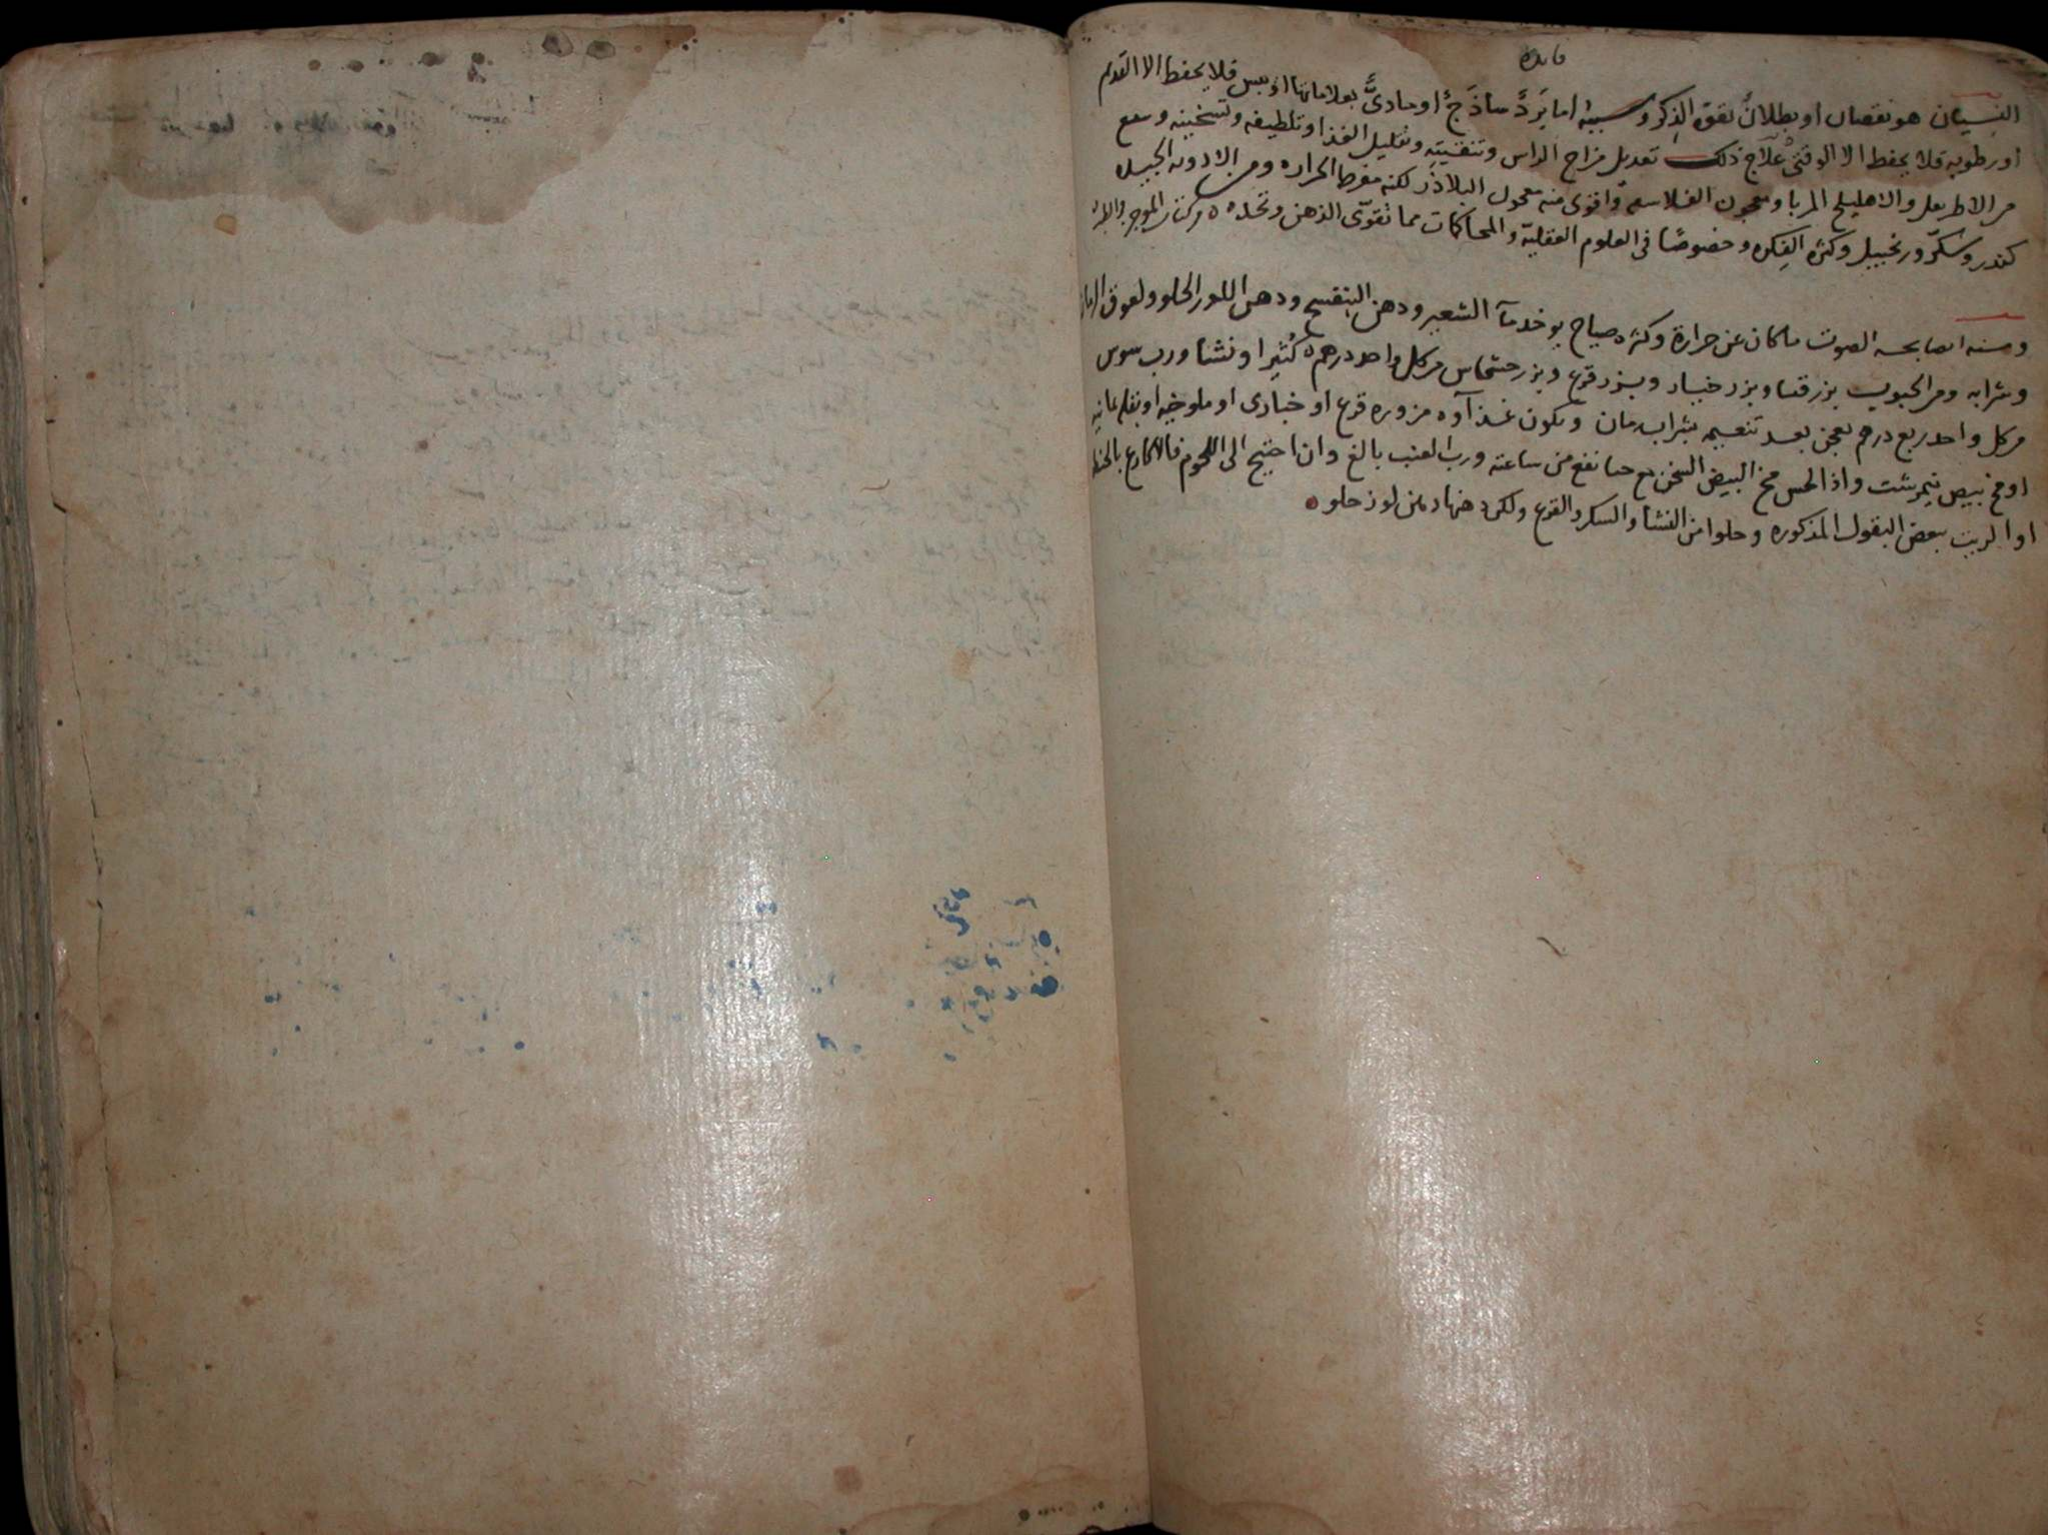 فايده
النسيان هو نقصان او بطلان لقوة الذكر وسببه اما برد ساذج او مادي بعلاماتها او يبس فلا يحفظ الا القديم
او رطوبه فلا يحفظ الا الوقتي علاج ذلك تعديل مزاج الراس وتنقيته وتقليل الغذا وتلطيفه وتسخينه وينفع
من الاطريفل والاهليلج المربا ومعجون الفلاسفه واقوى منه معجون البلاذر لكنه مفرط الحراره ومن الادويه الجيده
كندر وسكر وزنجبيل وكثره الفكره وخصوصًا في العلوم العقليّة والمحاكمات مما تقوّى الذهن وتحده ه من كتاب الموجز في الطب
ومنه ايضا بحه الصوت ما كان عن حرارة وكثره صياح يوخذ مآ الشعير ودهن البنفسج ودهن اللوز الحلو ولعوق الرمان
وشرابه ومن الحبوب بزر قثا وبزر خيار وبزر قرع وبزر خشخاش من كل واحد درهم كثيرا ونشا ورب سوس
من كل واحد ربع درهم يعجن بعد تنعيمه بشراب رمان ويكون غذآوه مزوره قرع او خبازى او ملوخيه او بقله يمانيه
او مخ بيض نيمرشت واذا لحس مخ البيض السخن مع حسا نفع من ساعته ورب العنب بالغ وان احتيج الى اللحوم فالاكارع بالحنطه
او الزيت ببعض البقول المذكوره وحلوا من النشا والسكر والقرع وليكن دهنها دهن لوز حلو ه